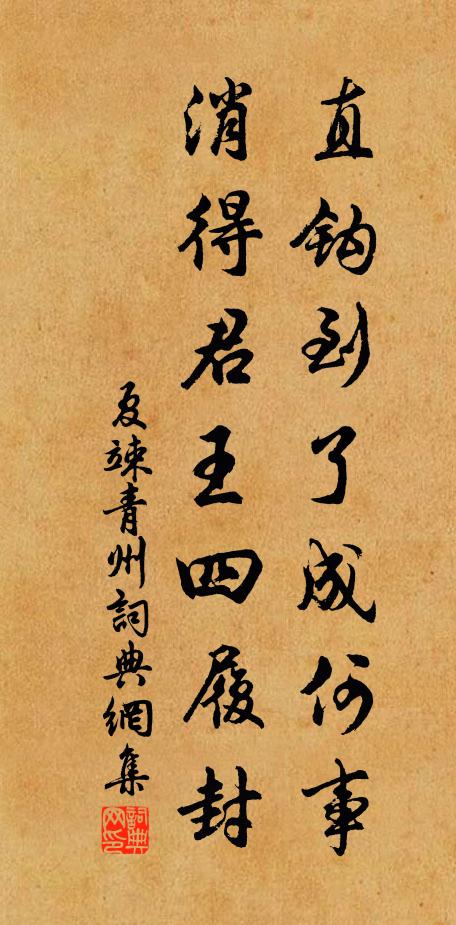 直鈎到了成何事
消得君王四履封
夏竦青州詞典網集
詞典网印